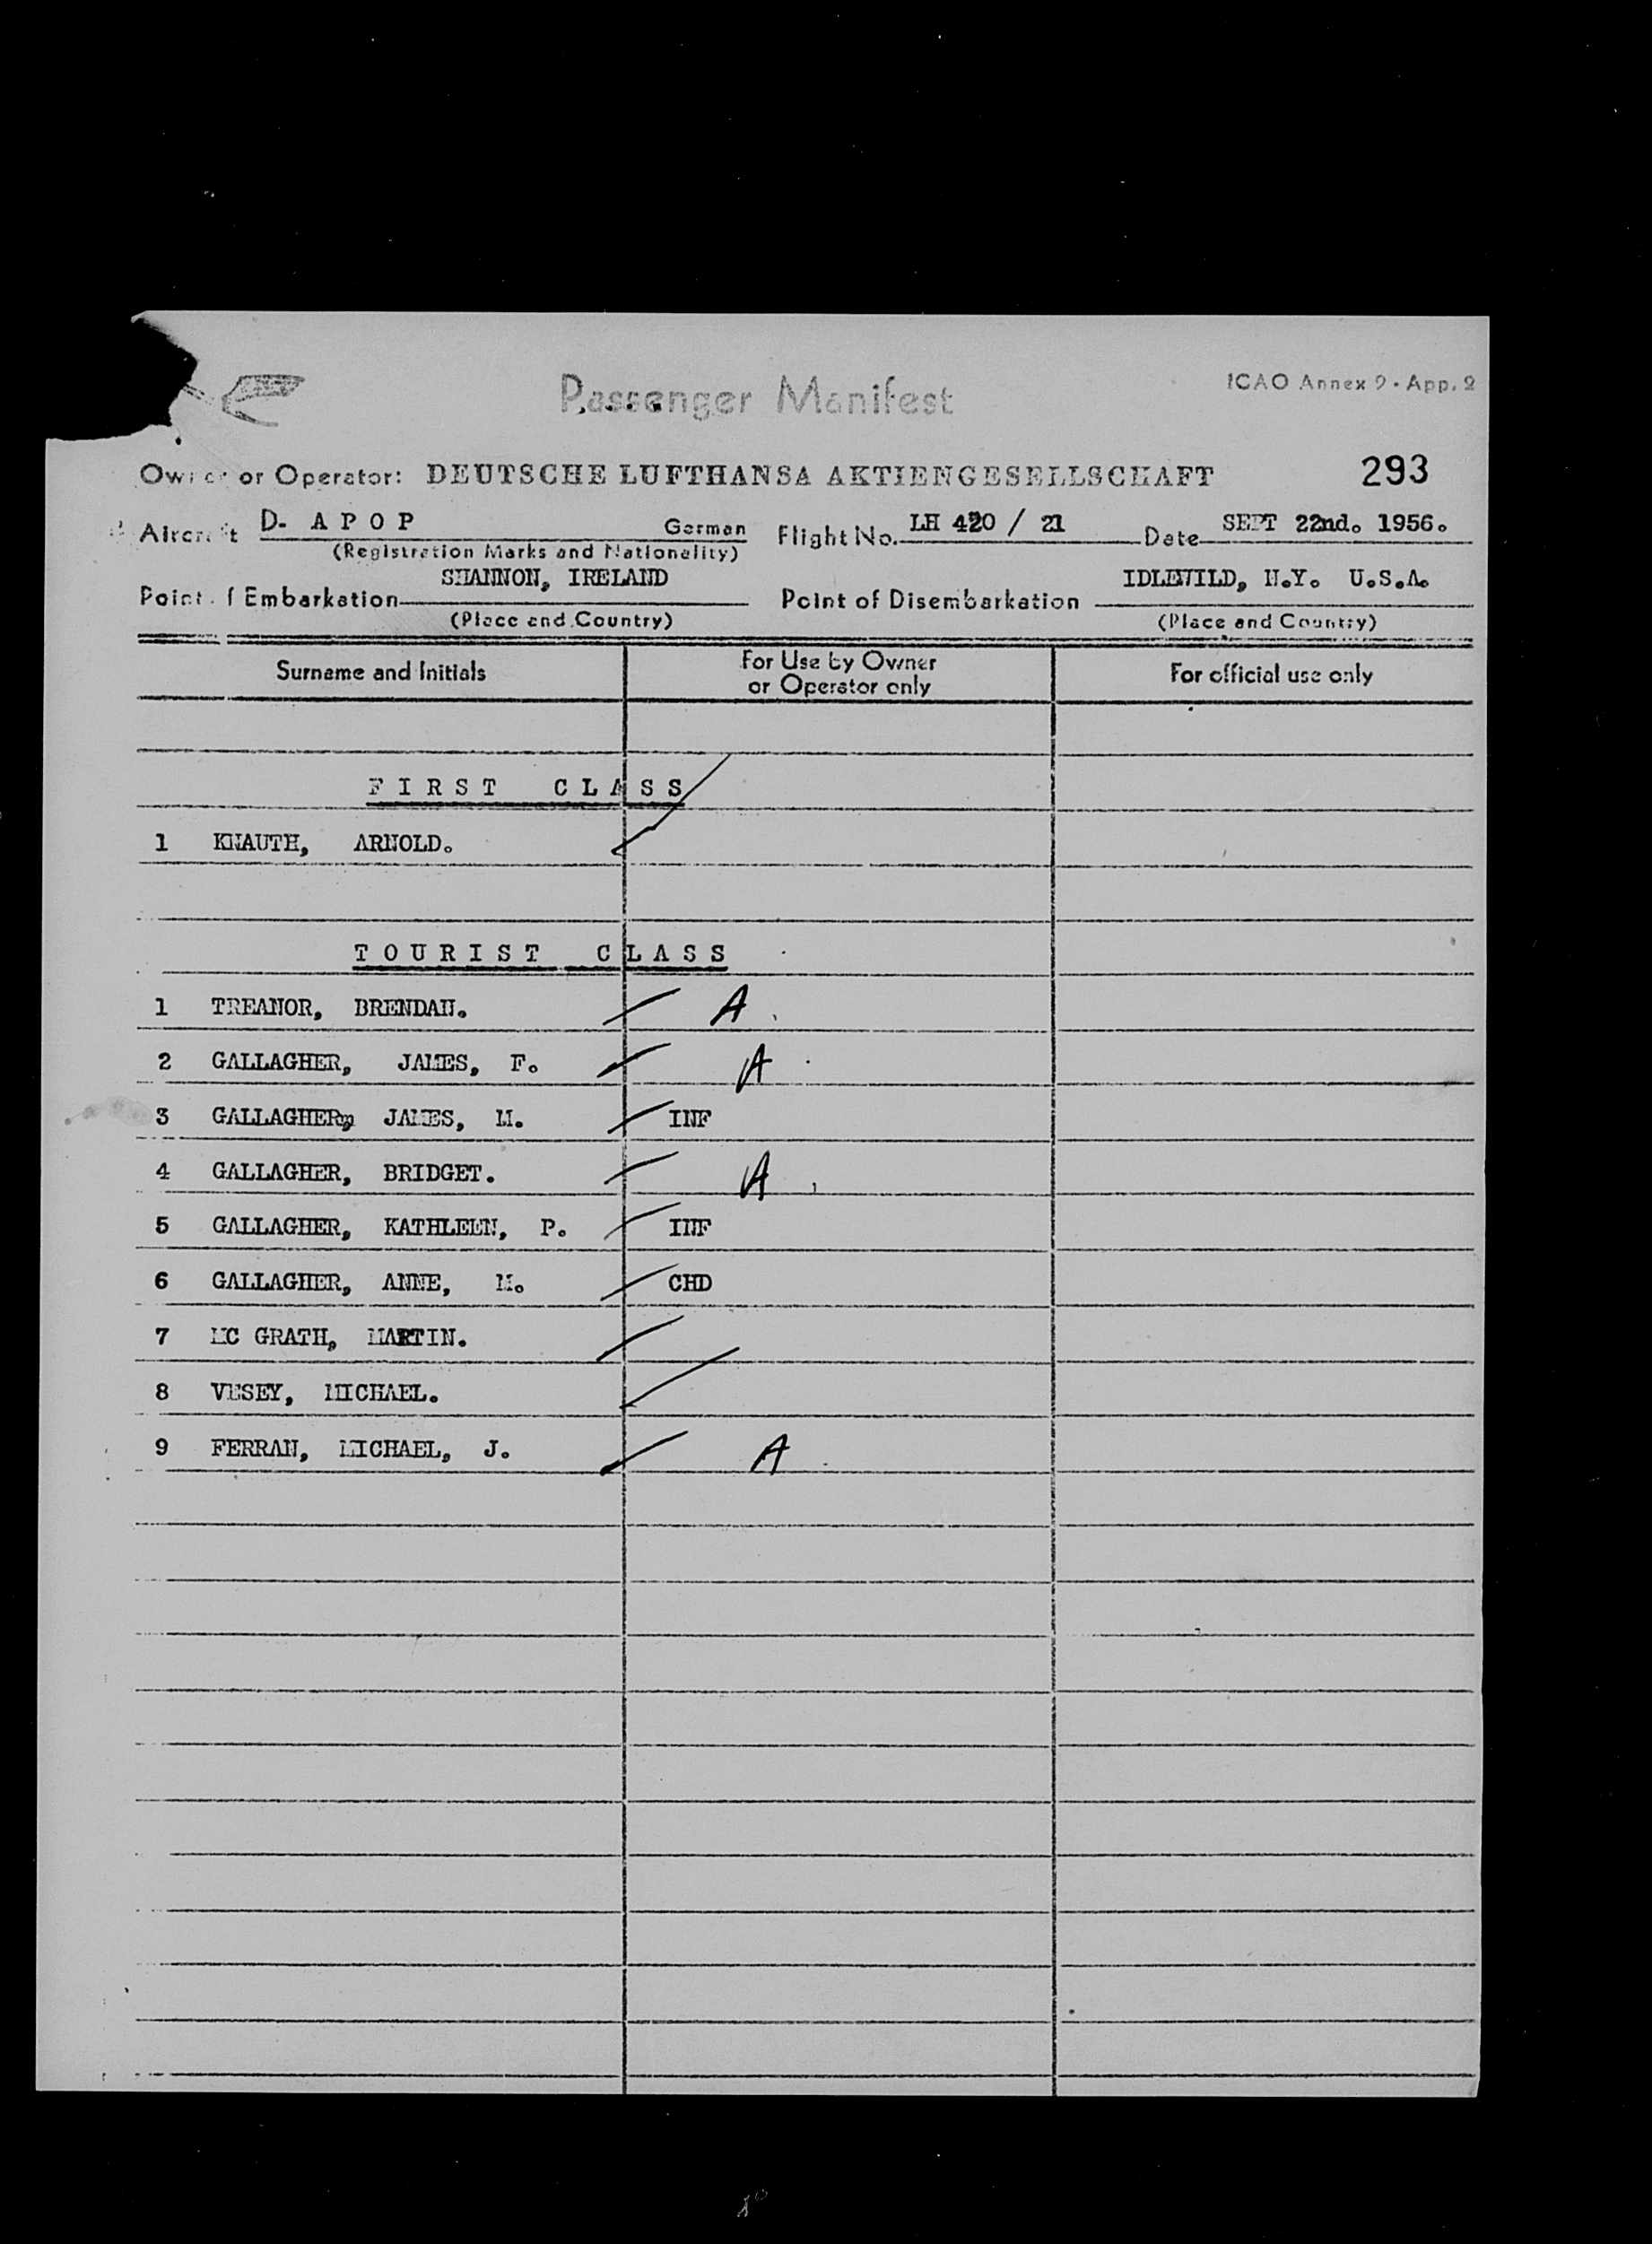 Passenger Manifest
ICAO Annex 9 · App. 2
Owner or Operator: DEUTSCHE LUFTHANSA AKTIENGESELLSCHAFT
293
Aircraft D- A P O P German Flight No. LH 420 / 21 Date SEPT 22nd. 1956.
(Registration Marks and Nationality)
SHANNON, IRELAND IDLEWILD, N.Y. U.S.A.
Point of Embarkation Point of Disembarkation
(Place and Country) (Place and Country)
Surname and Initials For Use by Owner or Operator only For official use only
FIRST CLASS
1 KNAUTH, ARNOLD.
TOURIST CLASS
1 TREANOR, BRENDAN. A
2 GALLAGHER, JAMES, F. A
3 GALLAGHER, JAMES, M. INF
4 GALLAGHER, BRIDGET. A
5 GALLAGHER, KATHLEEN, P. INF
6 GALLAGHER, ANNE, M. CHD
7 MC GRATH, MARTIN.
8 VESEY, MICHAEL.
9 FERRAN, MICHAEL, J. A